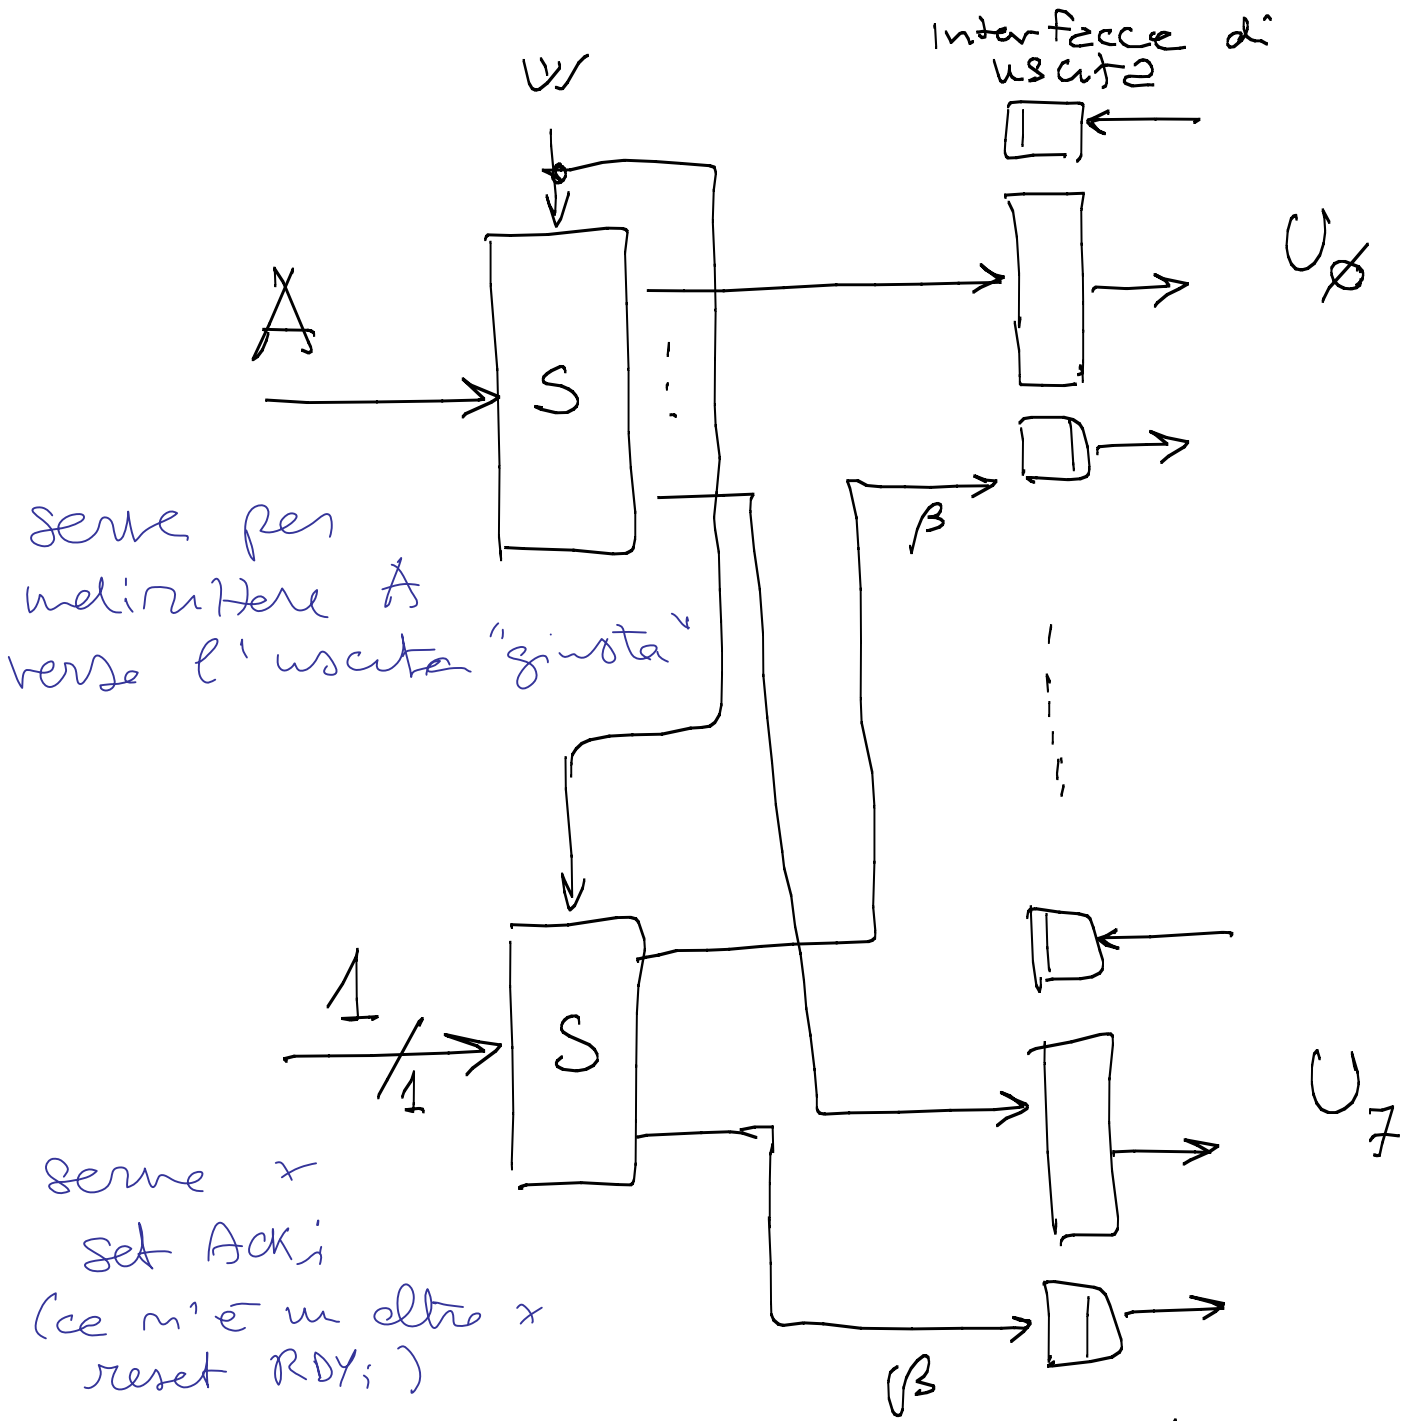 Interfacce di
uscita
W
U0
A
S
β
serve per
indirizzare A
verso l'uscita "giusta"
1
S
1
U7
serve x
set ACKi
(ce n'è un altro x
reset RDYi)
β